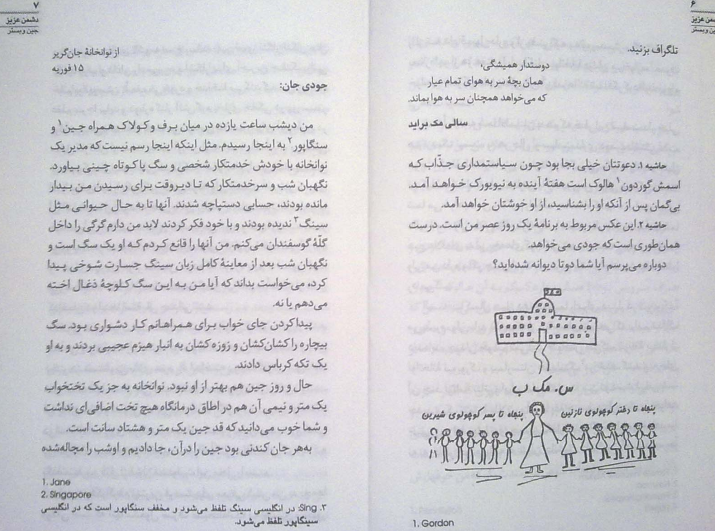 ۶
دشمن عزیز
جین وبستر
تلگراف بزنید.
دوستدار همیشگی،
همان بچهٔ سر به هوای تمام عیار
که می‌خواهد همچنان سر به هوا بماند.
سالی مک براید
حاشیه ۱. دعوتتان خیلی بجا بود چون سیاستمداری جذّاب که
اسمش گوردون۱ هالوک است هفتهٔ آینده به نیویورک خواهد آمد.
بی‌گمان پس از آنکه او را بشناسید، از او خوشتان خواهد آمد.
حاشیه ۲. این عکس مربوط به برنامهٔ یک روز عصر من است. درست
همان‌طوری است که جودی می‌خواهد.
دوباره می‌پرسم آیا شما دوتا دیوانه شده‌اید؟
س. مک ب
پنجاه تا دختر کوچولوی نازنین
پنجاه تا پسر کوچولوی شیرین
1. Gordon
۷
دشمن عزیز
جین وبستر
از نوانخانهٔ جان‌گریر
۱۵ فوریه
جودی جان:
من دیشب ساعت یازده در میان برف و کولاک همراه جین۱ و
سنگاپور۲ به اینجا رسیدم. مثل اینکه اینجا رسم نیست که مدیر یک
نوانخانه با خودش خدمتکار شخصی و سگ پاکوتاه چینی بیاورد.
نگهبان شب و سرخدمتکار که تا دیروقت برای رسیدن من بیدار
مانده بودند، حسابی دستپاچه شدند. آنها تا به حال حیوانی مثل
سینگ۳ ندیده بودند و با خود فکر کردند لابد من دارم گرگی را داخل
گلّهٔ گوسفندان می‌کنم. من آنها را قانع کردم که او یک سگ است و
نگهبان شب بعد از معاینهٔ کامل زبان سینگ جسارت شوخی پیدا
کرد، می‌خواست بداند که آیا من به این سگ کلوچهٔ ذغال اخته
می‌دهم یا نه.
پیدا کردن جای خواب برای همراهانم کار دشواری بود. سگ
بیچاره را کشان‌کشان و زوزه کشان به انبار هیزم عجیبی بردند و به او
یک تکه کرباس دادند.
حال و روز جین هم بهتر از او نبود. نوانخانه به جز یک تختخواب
یک متر و نیمی آن هم در اطاق درمانگاه هیچ تخت اضافه‌ای نداشت
و شما خوب می‌دانید که قد جین یک متر و هشتاد سانت است.
به‌هر جان کندنی بود جین را در آن، جا دادیم و او شب را مچاله‌شده
1. Jane
2. Singapore
۳. Sing در انگلیسی سینگ تلفظ می‌شود و مخفف سنگاپور است که در انگلیسی
سینگاپور تلفظ می‌شود.